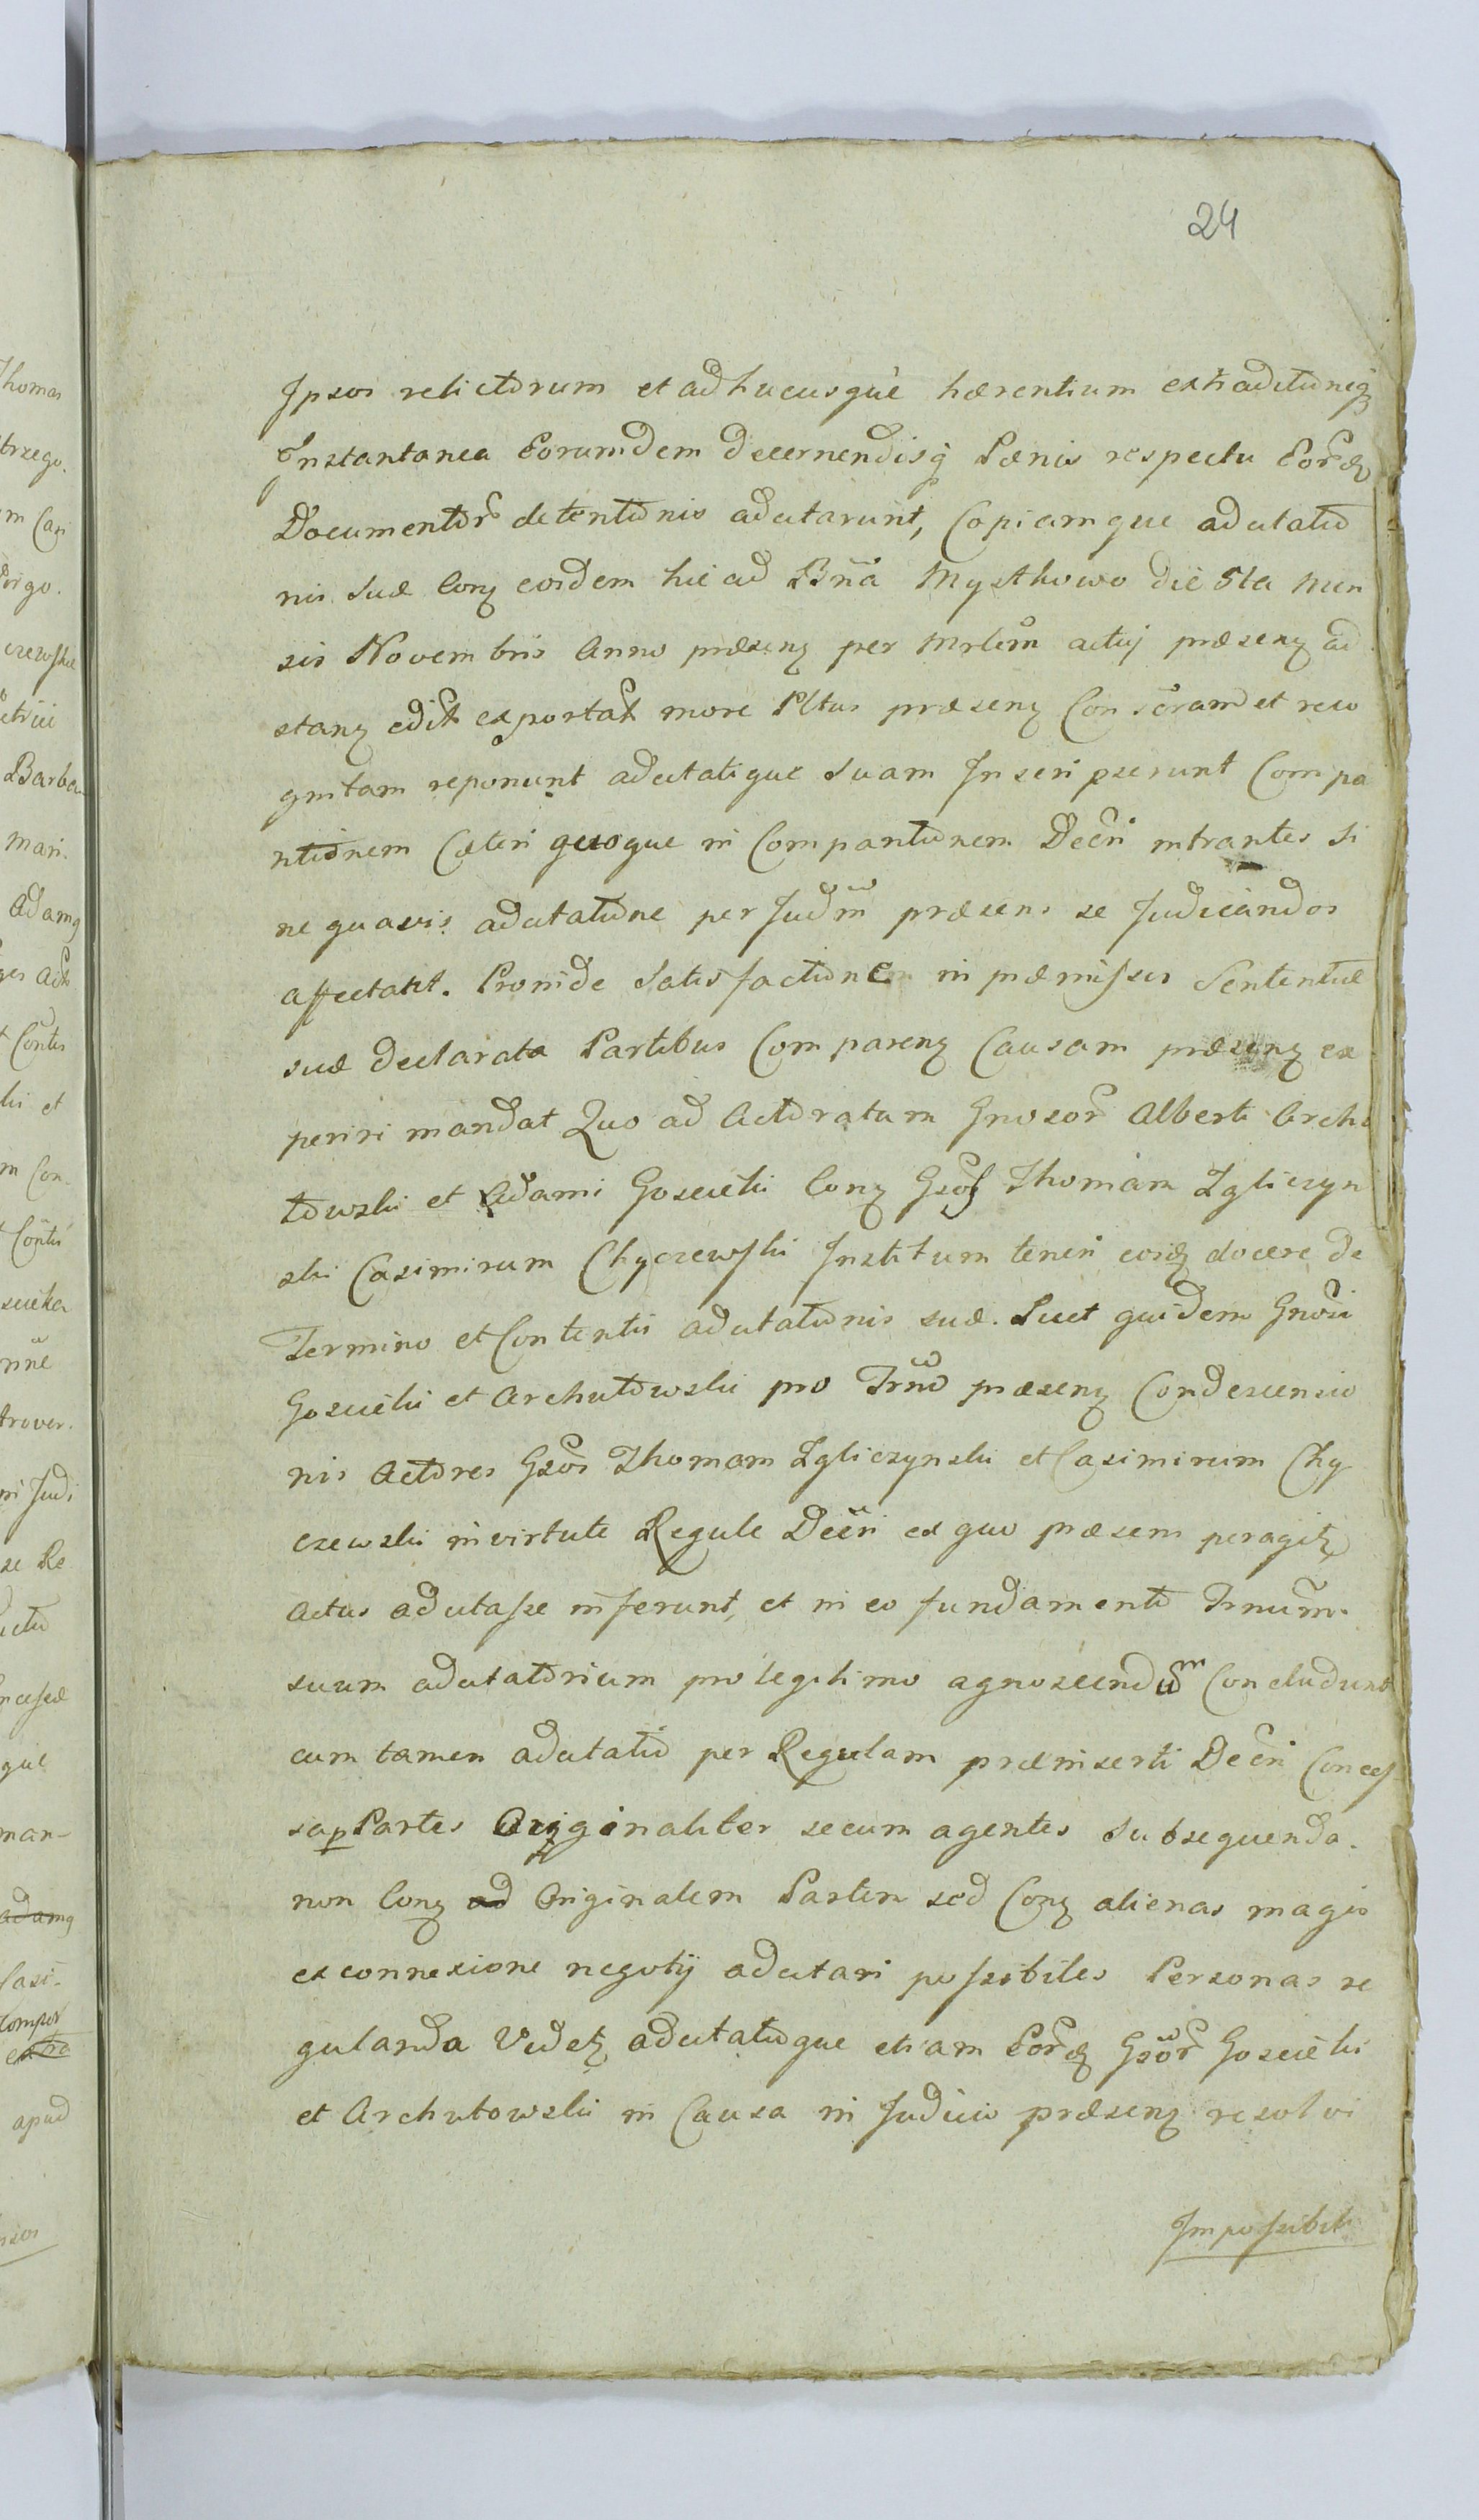 24
Ipsos relictorum et adhucusque hærentium extraditioneq3
Instantanea Eorumdem decernendisq3 Pænis respectu Eor̃d3
Documentor̃ detentionis adcitarunt, Copiamque adcitatio
nis suæ Con3 eosdem hic ad Bn̄a Mystkowo die 5ta men
sis Novembris Anno præsen3 per Mrlem̃ actuj præsen3 ad
stan3 edit̃ exportat̃ more Pltus præsen3 Conscr̃am et reco
gnitam reponunt adcitatique suam Inscripserunt Compa
ritionem Cæteri quoque in Comparitionem Decr̃i intrantes Si
ne quavis adcitatione per Judm̄ præsens se Judicandos
affectant. Proinde Satisfactionem in præmissis Sententiæ
suæ declarata Partibus Comparen3 Causam præsen3 ex
periri mandat Quo ad Actoratum Gnosor̃ Alberti Archu
towski et Adami Goscicki Con3 Gsos̃ Thomam Zgliczyn
ski Casimirum Chyczewski Institum teneri eosd3 docere de
Termino et Contentis adcitationis suæ. Licet quidem Gnos̃i
Goscicki et Archutowski pro Trn̄o præsen3 Condescensio
nis Actores Gsos̃ Thomam Zgliczynski et Casimirum Chy
czewski in virtute Regulæ Decr̃i ex quo præsens peragit3
Actus adcitasse inferunt, et in eo fundamento Trnum̃
suum adcitatorium pro legitimo agnoscendum Concludunt
cum tamen adcitatio per Regulam præinserti Decr̃i Conces
sa p Partes Originaliter secum agentes Subsequenda
non Con3 Originalem Partem sed Con3 alienas magis
ex connexione negotij adcitari possibiles Personas re
gulanda Videt3 adcitatioque etiam Eor̃d3 Gsor̃ Goscicki
et Archutowski in Causa in Judicio præsen3 resolvi
Impossibili